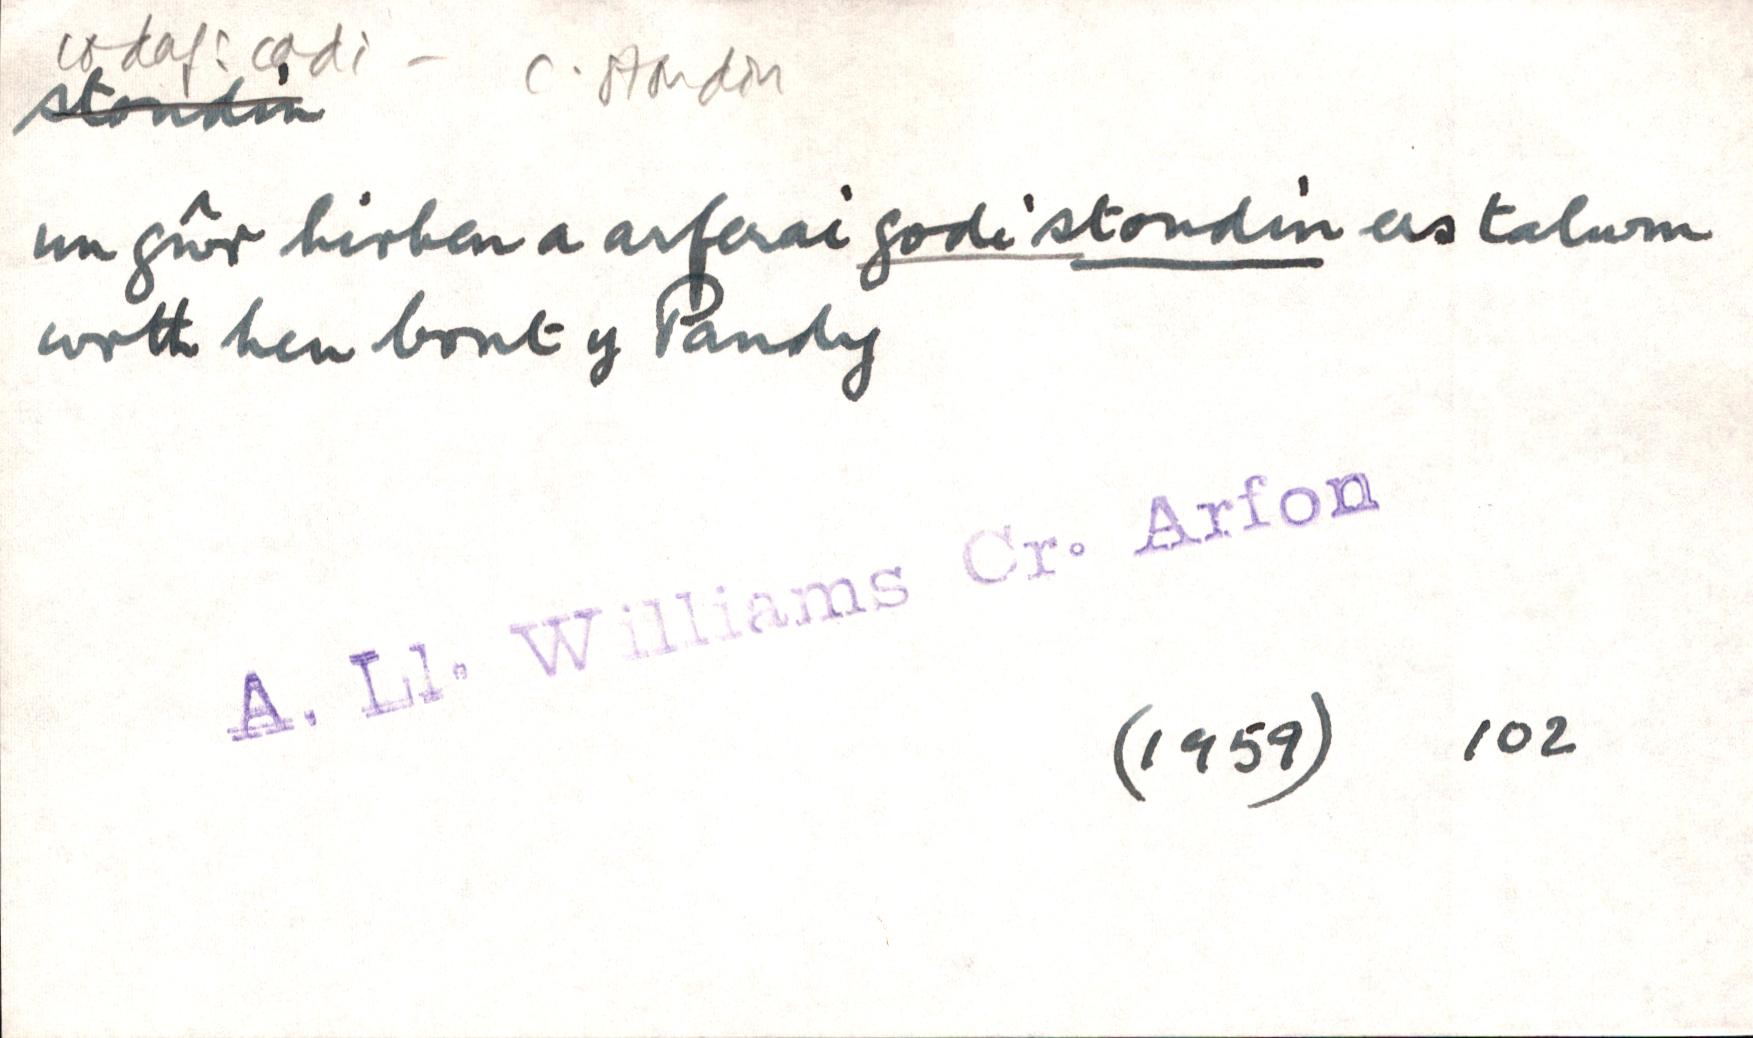 codaf: codi – c. stondin
stondin
un gŵr hirben a arferai godi stondin ers talwm
wrth hen bont y Pandy
A. Ll. Williams Cr. Arfon
(1959) 102